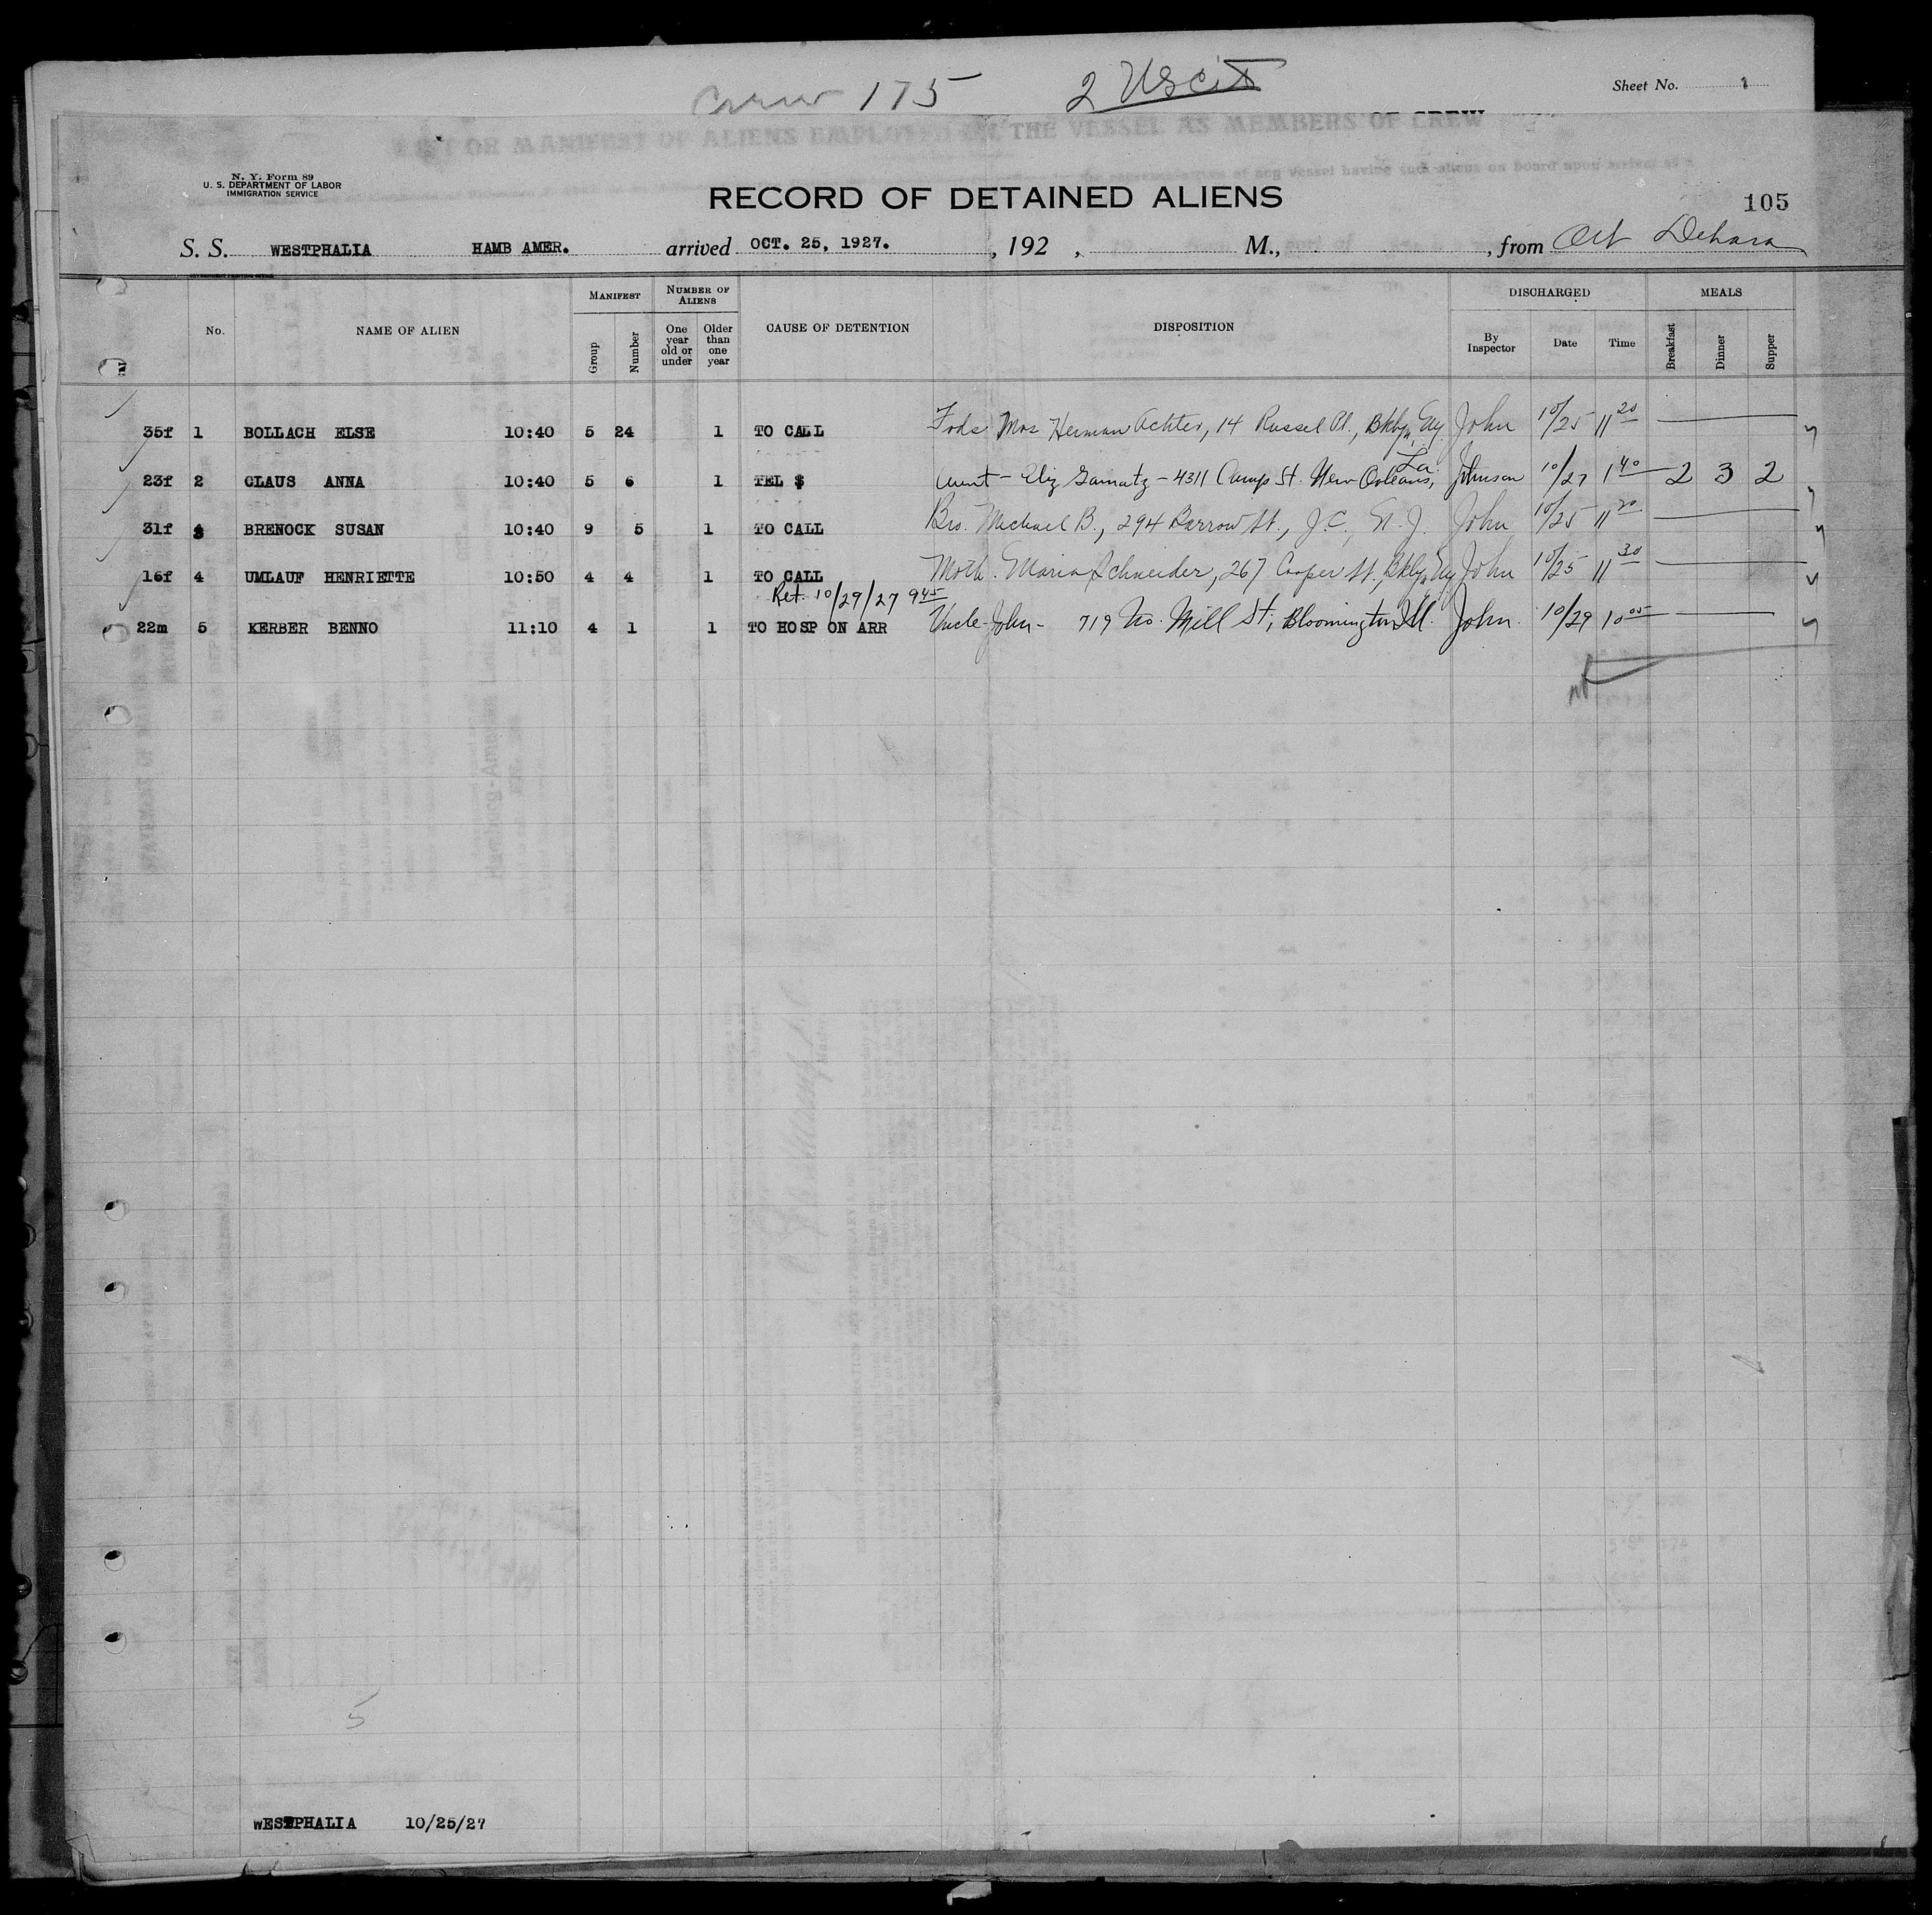 Crew 175 2 USCit
Sheet No. 1
OF CREW
LIST OR MANIFEST OF ALIENS EMPLOYED ON THE VESSEL AS MEMBERS OF CREW
N. Y. Form 89
U. S. DEPARTMENT OF LABOR
IMMIGRATION SERVICE
RECORD OF DETAINED ALIENS
105
S. S. WESTPHALIA HAMB AMER. arrived OCT. 25, 1927. , 192 , M., , from
No. NAME OF ALIEN MANIFEST Group Number NUMBER OF ALIENS One year old or under Older than one year CAUSE OF DETENTION DISPOSITION DISCHARGED By Inspector Date Time MEALS Breakfast Dinner Supper
35f 1 BOLLACH ELSE 10:40 5 24 1 TO CALL Mrs Herman Achter, 14 Russel Pl., Bklyn, NY John 10/25 11 20
23f 2 CLAUS ANNA 10:40 5 6 1 TEL $ Aunt - Eliz - 4311 Camp St. New Orleans, La. Johnson 10/27 1 40 2 3 2
31f 3 BRENOCK SUSAN 10:40 9 5 1 TO CALL Bro. Michael B., 294 Barrow St., J.C., N.J. John 10/25 11 20
16f 4 UMLAUF HENRIETTE 10:50 4 4 1 TO CALL Moth. Maria Schneider, 267 Cooper St., Bklyn, NY John 10/25 11 30
Ret. 10/29/27 9 45
22m 5 KERBER BENNO 11:10 4 1 1 TO HOSP ON ARR Uncle John - 719 No. Mill St, Bloomington Ill. John 10/29 10 00
5
WESTPHALIA 10/25/27